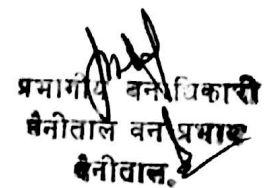 प्रभागीय वनाधिकारी
नैनीताल वन प्रभाग
नैनीताल.